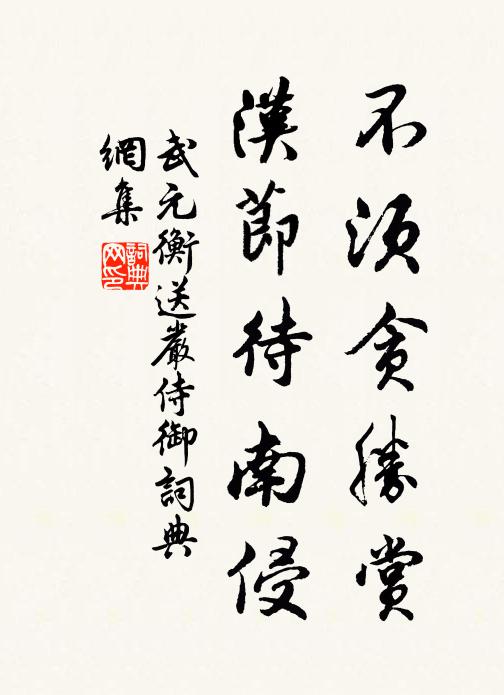 不須貪勝賞
漢節待南侵
武元衡送嚴侍御詞典
網集
詞典
网印